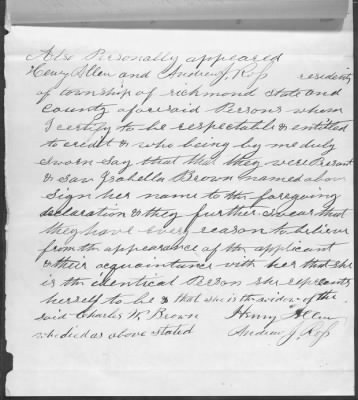 Also Personally appeared
Henry Allen and Andrew J. Ross residents
of township of richmond state and
county aforesaid Persons whom
I certify to be respectable & entitled
to credit & who being by me duly
sworn say that that they were Present
& saw Isabella Brown named above
sign her name to the foregoing
declaration & they further swear that
they have every reason to believe
from the appearance of the applicant
& their acquaintance with her that she
is the identical Person she represents
herself to be & that she is the widow of the
said Charles W. Brown Henry Allen
who died as above stated Andrew J. Ross